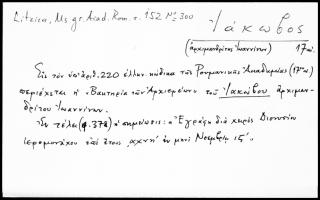 Litzica, Ms gr. Acad. Rom. σ. 152 Nº 300
Ἰάκωβος
(ἀρχιμανδρίτης Ἰωαννίνων) 17ου
Εἰς τὸν ὑπ' ἀρ. 220 ἑλλην. κώδικα τῆς Ρουμανικῆς Ἀκαδημείας (17ου)
περιέχεται ἡ «Βακτηρία τῶν Ἀρχιερέων» τοῦ Ἰακώβου ἀρχιμαν-
δρίτου Ἰωαννίνων.
Ἐν τέλει (φ. 378) ἡ σημείωσις: «Ἐγράφη διὰ χειρὸς Διονυσίου
ἱερομονάχου ἐπὶ ἔτους αχνή ἐν μηνὶ Νοεμβρίῳ ις'.